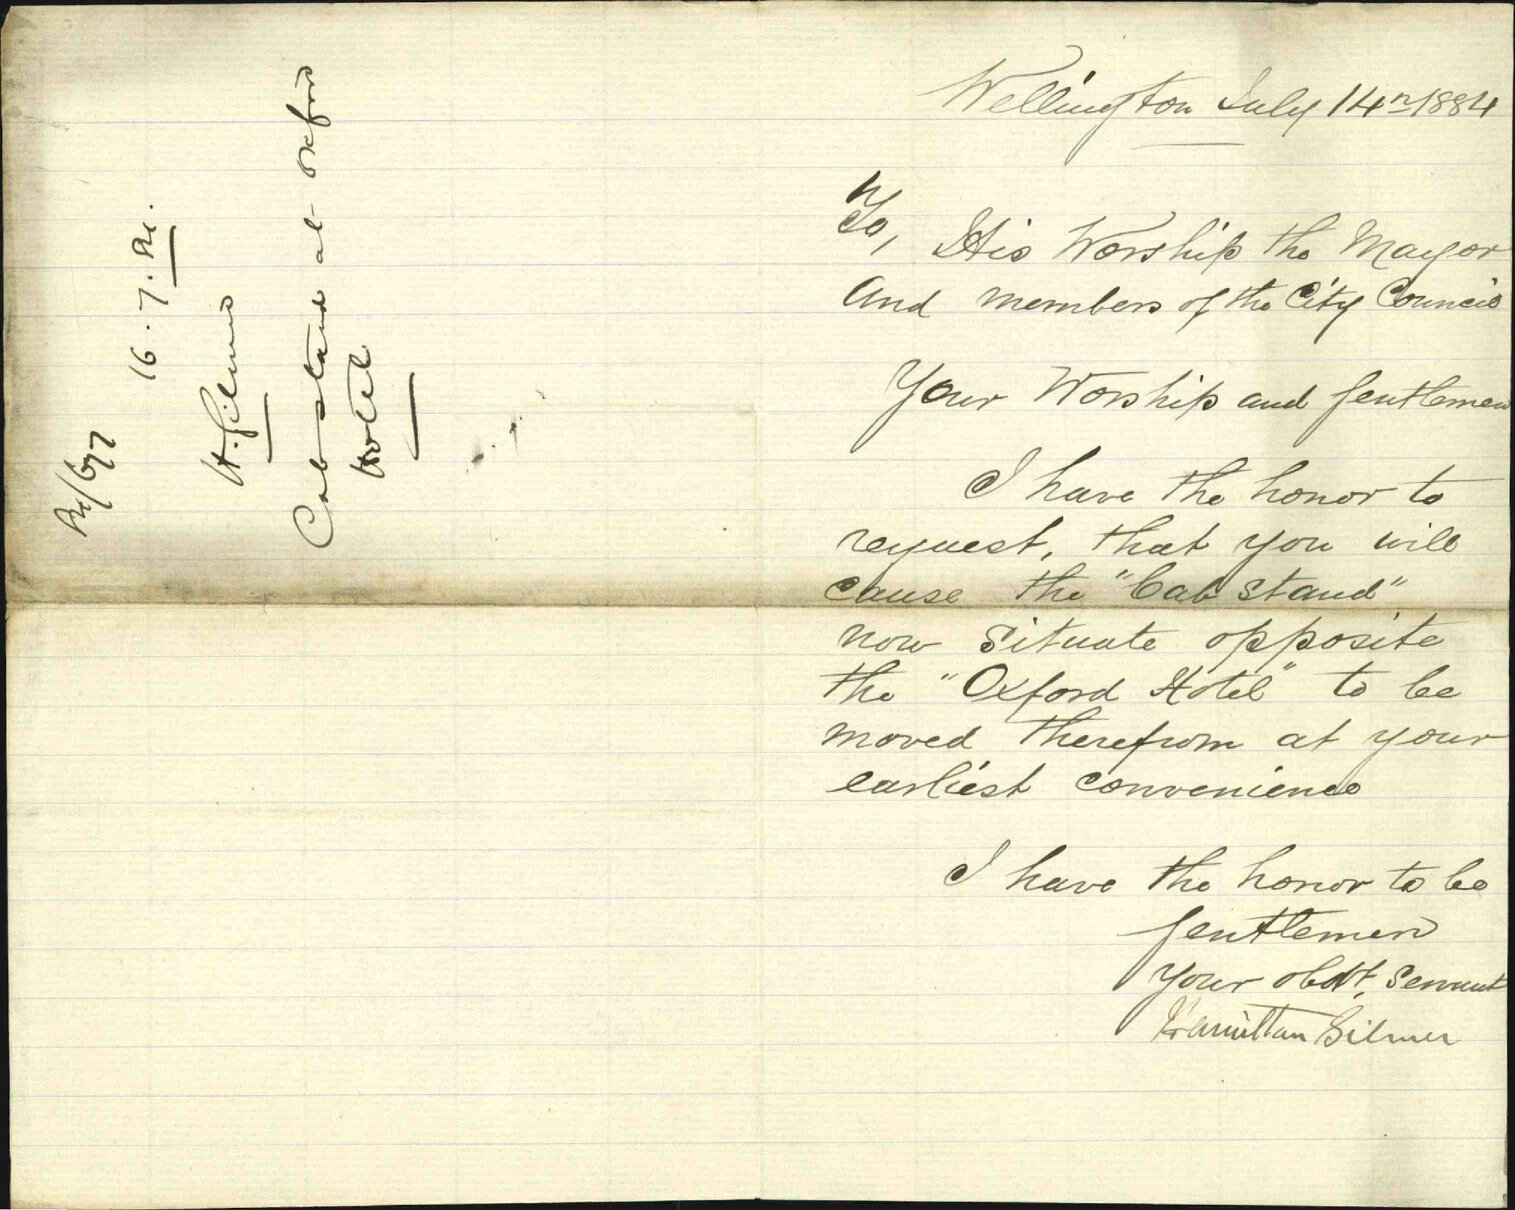 84/677
16.7.84.
H. Gilmer
Cab stand at Oxford
Hotel
Wellington July 14th 1884
To, His Worship the Mayor
And members of the City Council
Your Worship and Gentlemen
I have the honor to
request, that you will
cause the "Cab stand"
now situate opposite
the "Oxford Hotel" to be
moved therefrom at your
earliest convenience
I have the honor to be
Gentlemen
Your obdt. Servant
Hamilton Gilmer